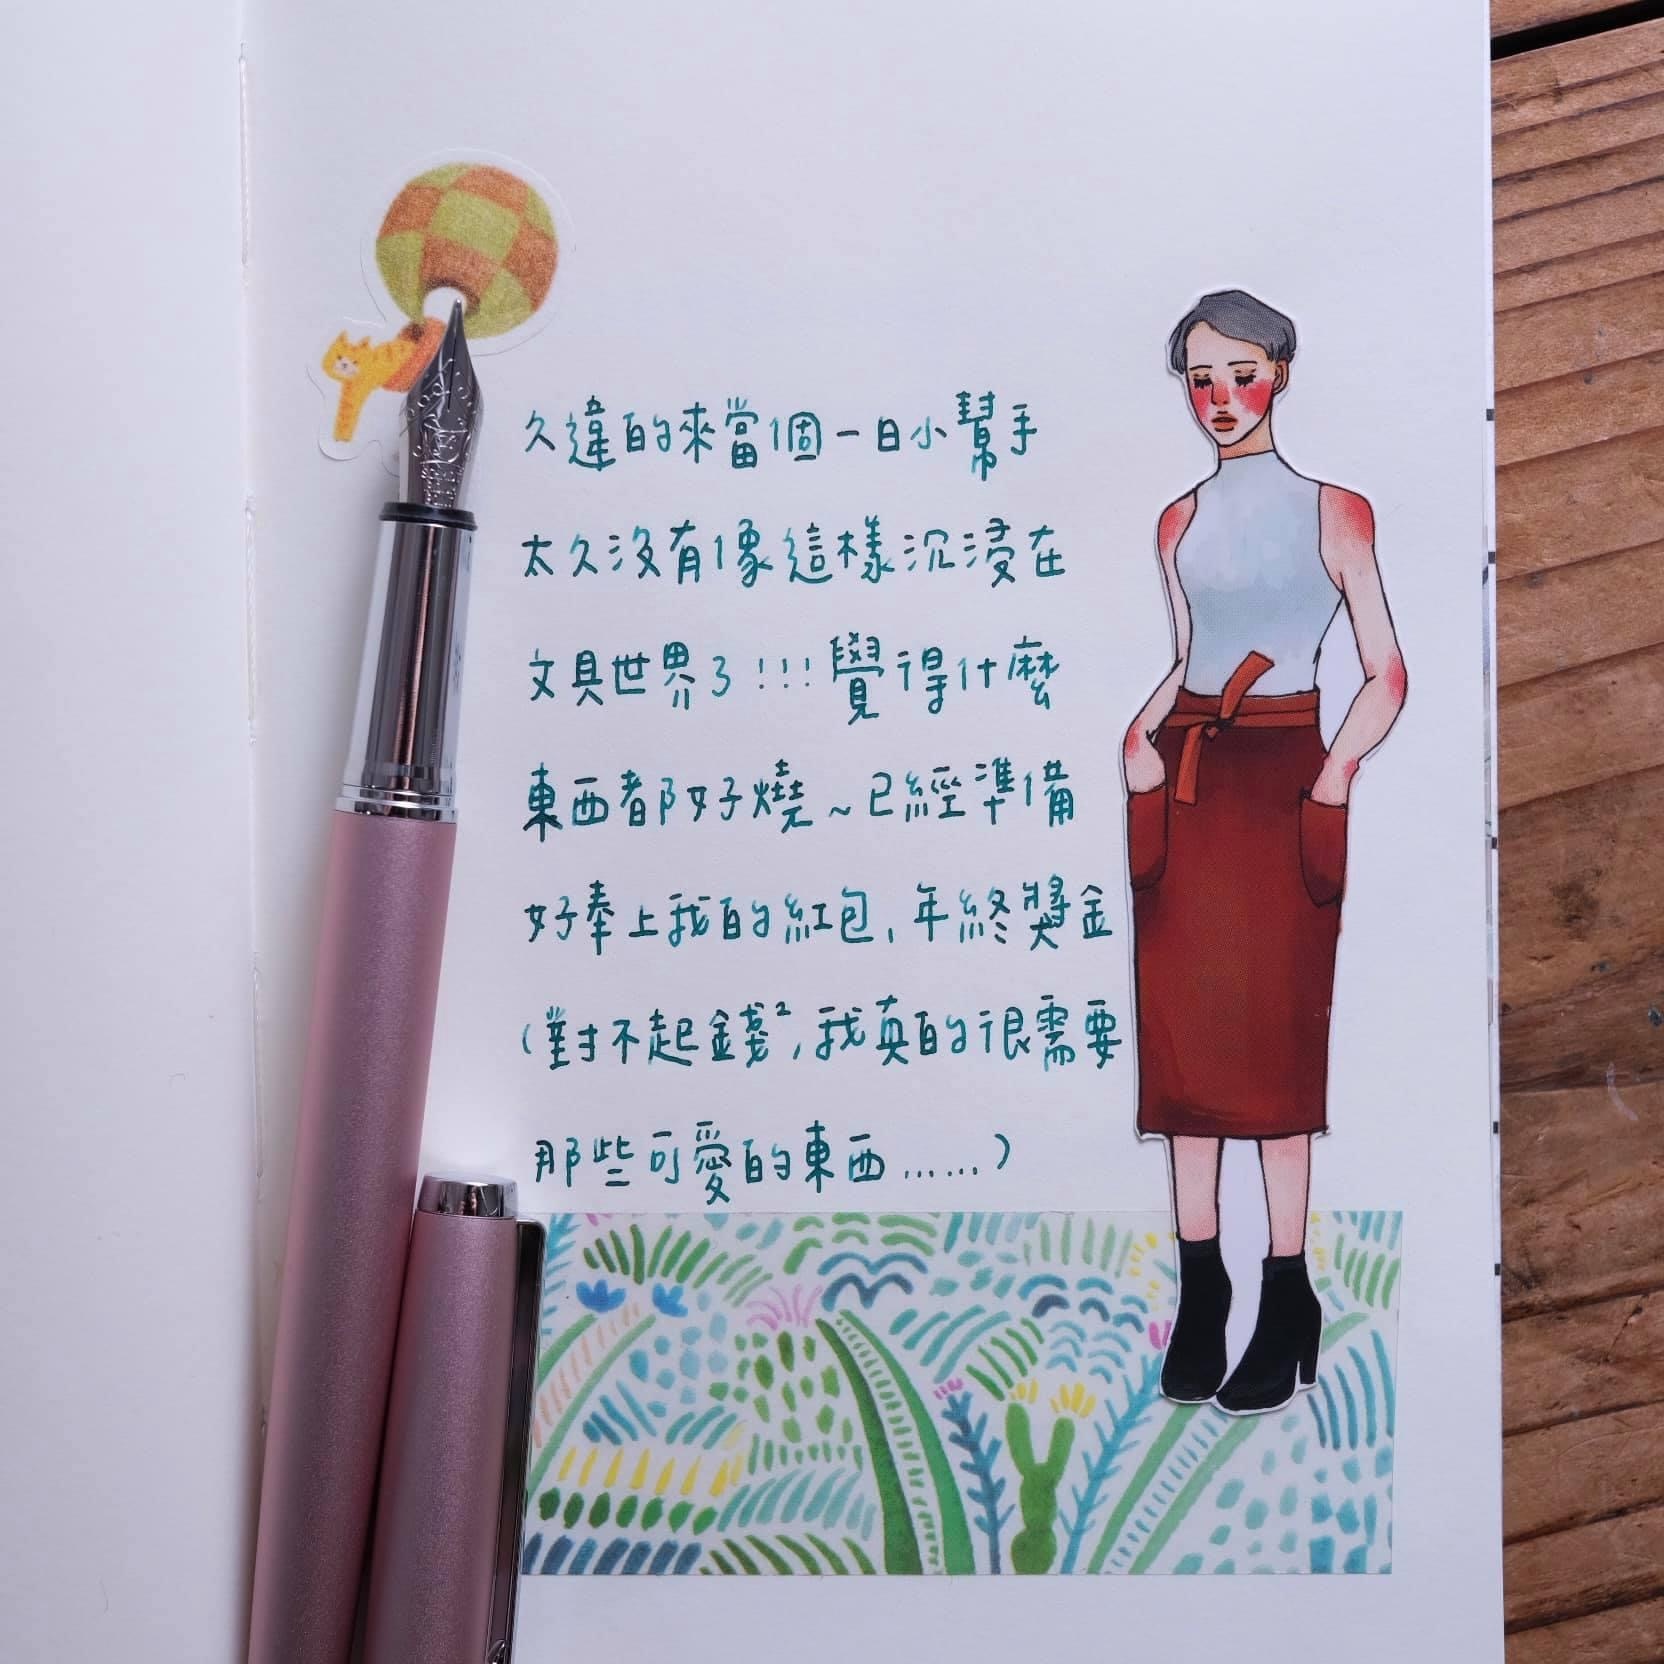 久違的來當個一日小幫手
太久沒有像這樣沉浸在
文具世界了!!!覺得什麼
東西都好燒~已經準備
好奉上我的紅包、年終獎金
(對不起錢²,我真的很需要
那些可愛的東西......)